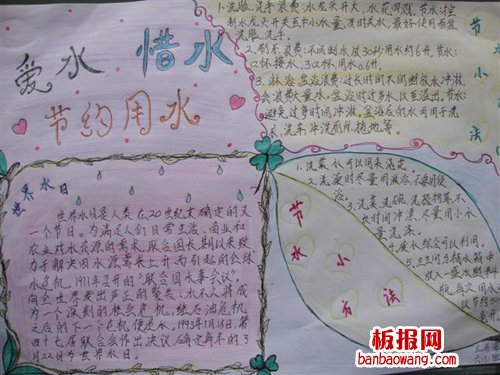 爱水 惜水
节约用水
1.洗脸、洗手浪费:水龙头开大,水花四溅。节水:控
制水龙头开关至中小水量,及时关水,最好使用面盆
洗脸、洗手。
2.刷牙浪费:不间断放水30秒用水约6升。节水:
口杯接水,3口杯用水0.6升。
3.淋浴、盆浴浪费:过长时间不间断放水冲淋,
会浪费大量水。盆浴时过多水,以至溢出。节水:
避免过多时间冲淋,盆浴后的水用于洗
衣、洗车、冲洗厕所、拖地等。
节
水
小
方
法
世界水日
世界水日是人类在20世纪末确定的又
一个节日。为满足人们日常生活、商业和
农业对水资源的需求,联合国长期以来致
力于解决因水源需求上升而引起的全球
水危机。1977年召开的“联合国水事会议”,
向全世界发出严正的警告:水不久将成
为一个深刻的社会危机,继石油危机
之后的下一个危机便是水。1993年1月18日,第
四十七届联合国大会作出决议,确定每年的3
月22日为世界水日。
节
水
小
方
法
1.洗菜水可以用来浇花。
2.洗澡时尽量用淋浴,不要用浴
缸。
3.洗菜、洗碗、洗器物等不
长时间冲流,尽量用小水
量洗涤。
板报网
banbaowang.com